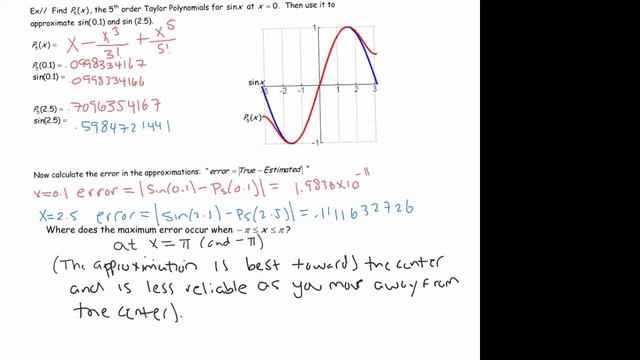 Ex// Find P₅(x), the 5th order Taylor Polynomials for sinx at x = 0. Then use it to
approximate sin(0.1) and sin (2.5).
P₅(x) = x - x³/3! + x⁵/5!
P₅(0.1) = .0998334167
sin(0.1) = .0998334166
P₅(2.5) = .7096354167
sin(2.5) = .5984721441
1
sinx
-3 -2 -1 1 2 3
P₅(x)
-1
Now calculate the error in the approximations: "error = |True - Estimated|"
x=0.1 error = |sin(0.1) - P₅(0.1)| = 1.9830 x 10⁻¹¹
x=2.5 error = |sin(2.1) - P₅(2.5)| = .1111632726
Where does the maximum error occur when -π ≤ x ≤ π?
at x = π (and -π)
(The approximation is best towards the center
and is less reliable as you move away from
the center).